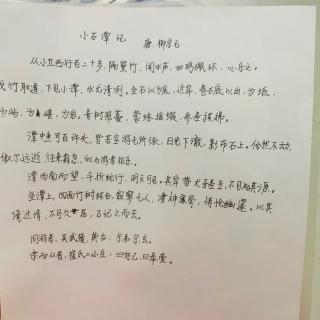 小石潭记
唐 柳宗元
从小丘西行百二十步，隔篁竹，闻水声，如鸣珮环，心乐之。
伐竹取道，下见小潭，水尤清冽。全石以为底，近岸，卷石底以出，为坻，
为屿，为嵁，为岩。青树翠蔓，蒙络摇缀，参差披拂。
潭中鱼可百许头，皆若空游无所依，日光下澈，影布石上。佁然不动，
俶尔远逝，往来翕忽，似与游者相乐。
潭西南而望，斗折蛇行，明灭可见。其岸势犬牙差互，不可知其源。
坐潭上，四面竹树环合，寂寥无人，凄神寒骨，悄怆幽邃。以其
境过清，不可久居，乃记之而去。
同游者，吴武陵，龚古，余弟宗玄。
隶而从者，崔氏二小生，曰恕己，曰奉壹。